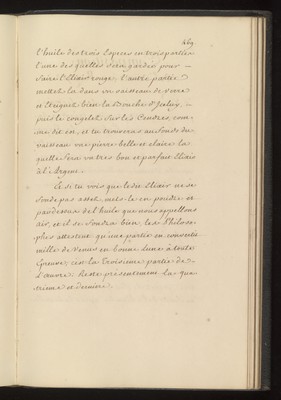 469
l'huile des trois Especes en trois parties
l'une des quelles sera gardée pour
faire l'Elixir rouge. l'autre partie
mettel la dans un vaisseau de verre
et bien la Bouche
puis le congelez sur les Cendres, com-
me dit est, et tu trouveras au fonds du
vaisseau une pierre belle et claire la
quelle sera un tres bon et parfait Elixir
à l'Argent.
Et si tu vois que ledit Elixir ne se
fonde pas assez, mets-le en poudre et
par dessus de l'huile que nous appellons
air, et il se fondra bien. les Philoso-
phes attestent qu'une partie en convertit
mille de Venus en bonne Lune à toute
Epreuve. c'est la Troisieme partie de
L'œuvre. Reste présentement la qua-
trieme et derniere.